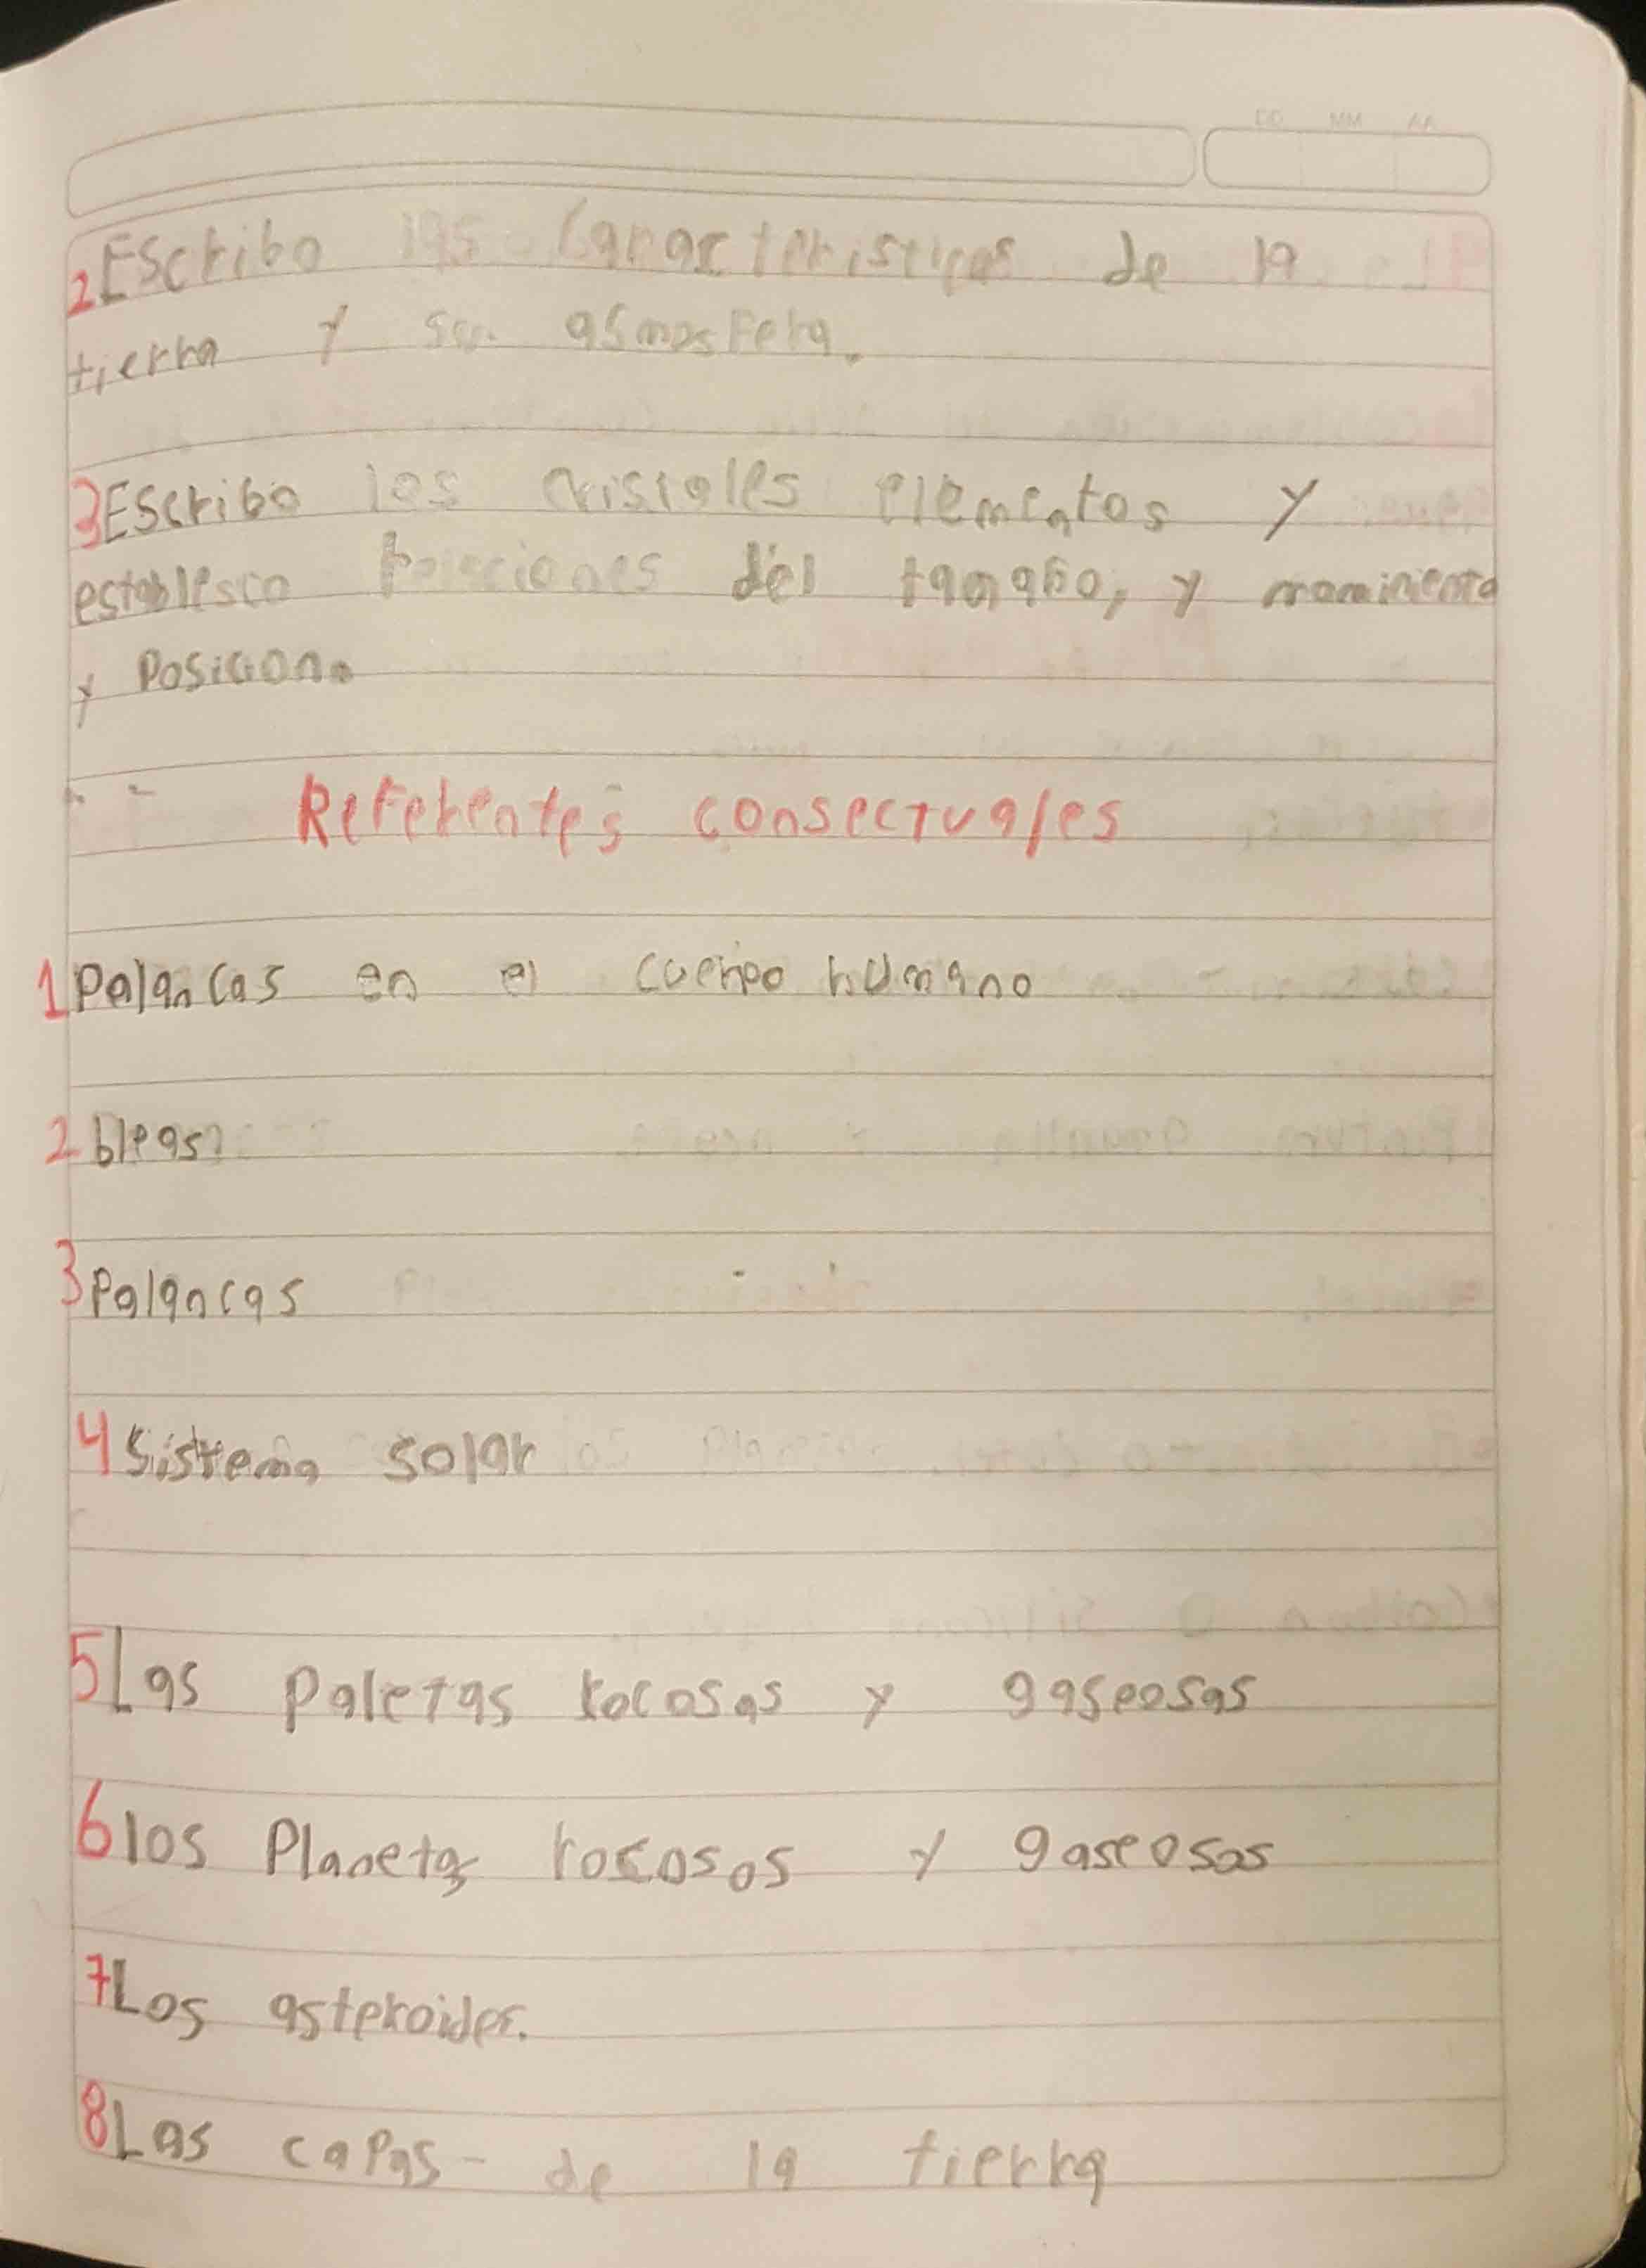 DD MM AA
2 Escribo las Caracteristicas de la
tierra y su asmosfera.
3 Escribo los cristalles elementos y
establesco relaciones del tamaño, y
y Posicion.
Referentes consectuales
1 Palancas en el cuerpo humano
2 bleas
3 Palancas
4 Sistema solar
5 Las Paletas rocosas y gaseosas
6 los Planetas rocosos y gaseosos
7 Los asteroides.
8 Las capas- de la tierra